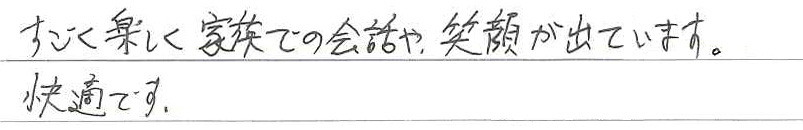 すごく楽しく家族での会話や、笑顔が出ています。
快適です。